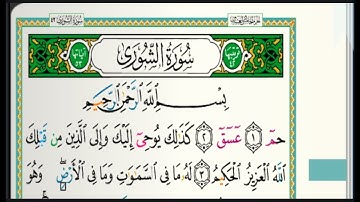 سُورَةُ الشُّورَىٰ
بِسْمِ اللَّهِ الرَّحْمَٰنِ الرَّحِيمِ
حمٓ ١ عٓسٓقٓ ٢ كَذَٰلِكَ يُوحِىٓ إِلَيْكَ وَإِلَى الَّذِينَ مِن قَبْلِكَ
اللَّهُ الْعَزِيزُ الْحَكِيمُ ٣ لَهُۥ مَا فِى السَّمَٰوَٰتِ وَمَا فِى الْأَرْضِ ۖ وَهُوَ